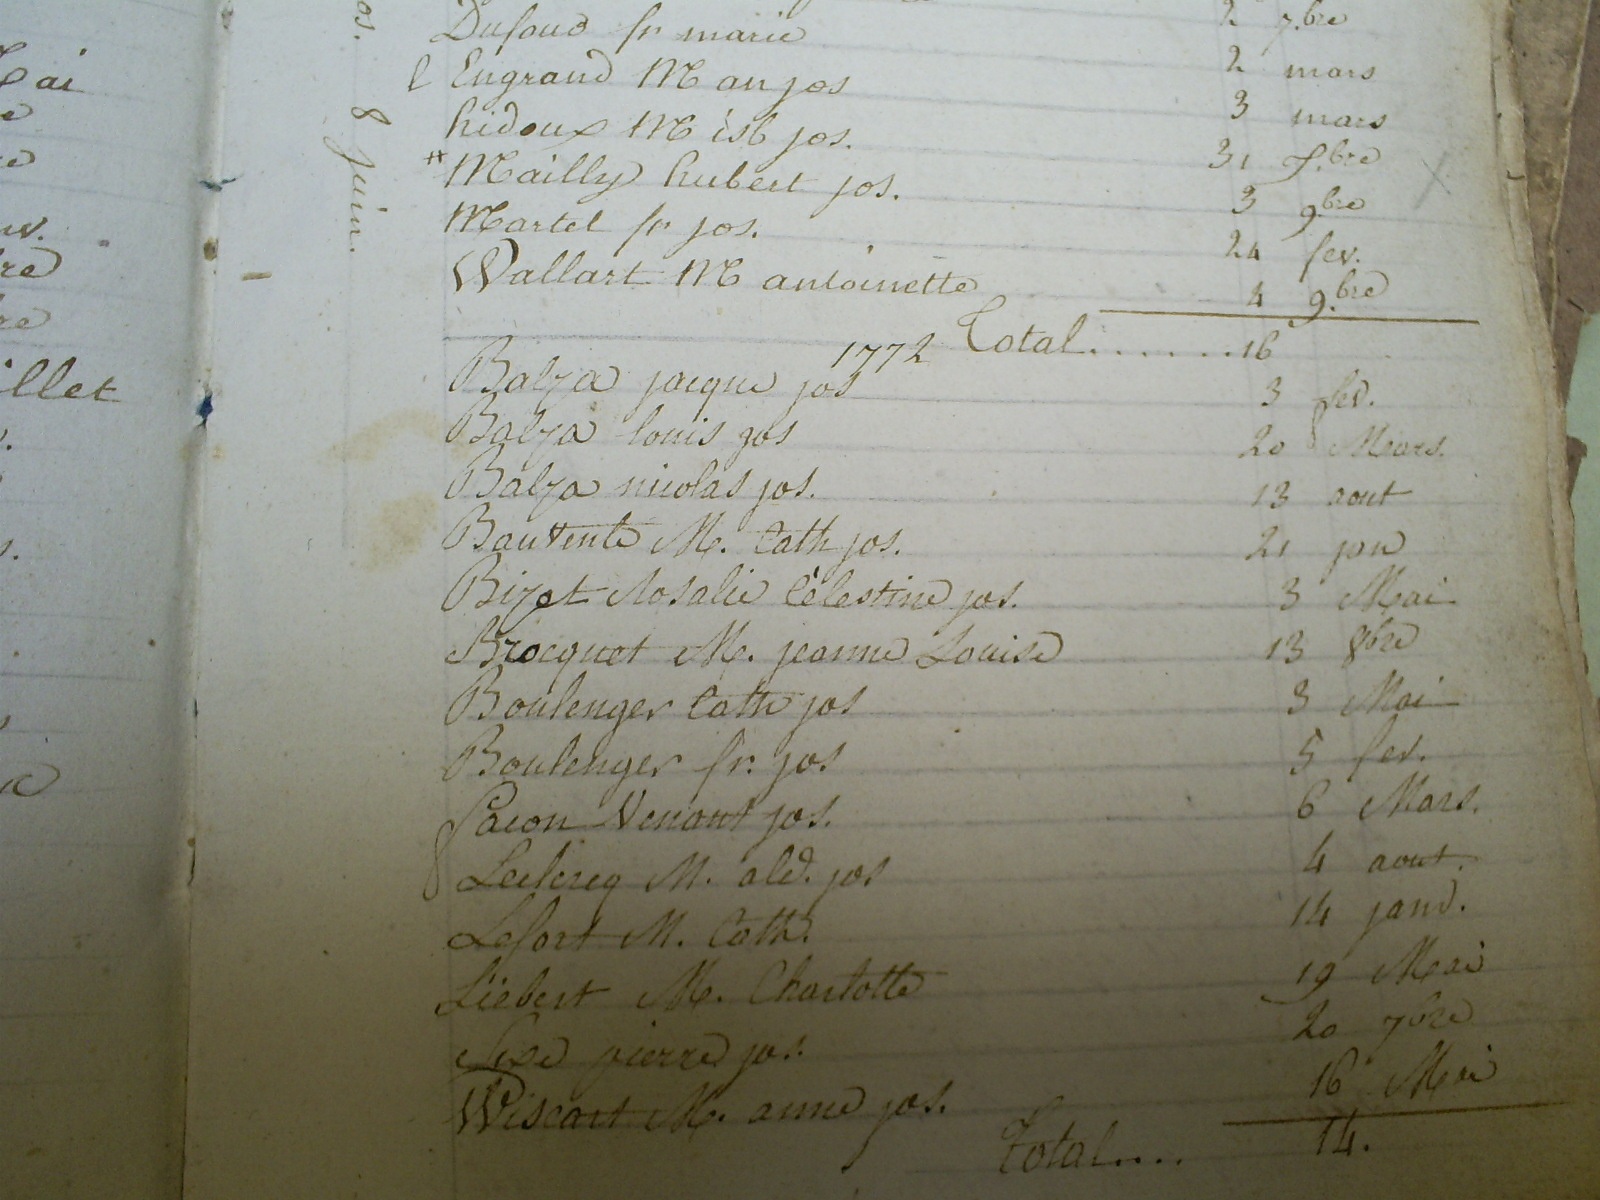 Dufour fr marie 2 7.bre
Engrand M an jos 2 mars
hidoux M isb jos. 3 mars
Mailly hubert jos. 31 bre
Martel fr jos. 3 9.bre
Wallart M antoinette 24 fev.
4 9.bre
Total.......16
1772
Balza jacque jos 3 fev.
Balza louis jos 20 Mars.
Balza nicolas jos. 13 aout
M. Cath jos. 21 jan
Bizet Rosalie Célestine jos. 3 Mai
Brocquet M. jeanne Louise 13 8bre
Boulenger Cath jos 3 Mai
Boulenger fr. jos 5 fev.
Venant jos. 6 Mars.
Leclercq M. ald. jos 4 aout.
Lefort M. Cath. 14 janv.
Liebert M. Charlotte 19 Mai
pierre jos. 20 7bre
Wiscart M. anne jos. 16 Mai
Total.... 14.
os. 8 Juin.
Mai
illet